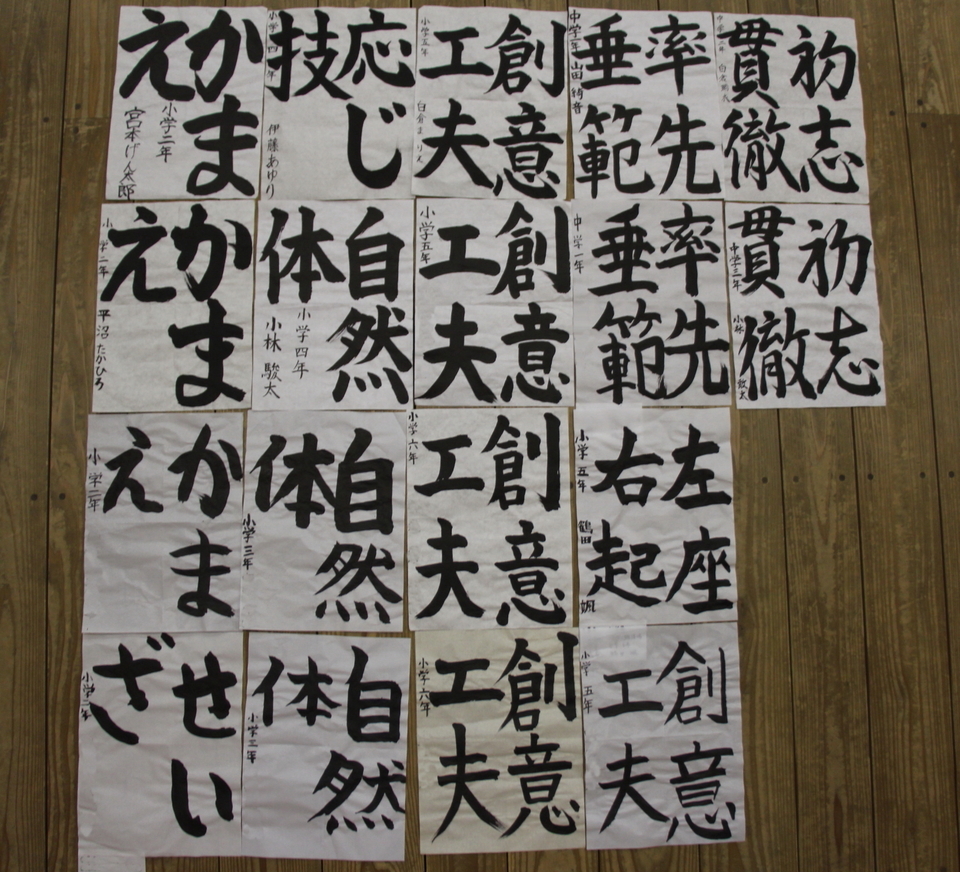 初志
貫徹
率先
垂範
中学一年 山田 綺音
創意
工夫
小学五年
応じ
技
小学四年 伊藤あゆり
かま
え
小学二年
宮本げん太郎
初志
貫徹
中学三年 小林
率先
垂範
中学一年
創意
工夫
小学五年
自然
体
小学四年
小林 駿太
かま
え
小学二年 平沼 たかひろ
左座
右起
小学五年 鶴田 颯
創意
工夫
小学六年
自然
体
小学三年
かま
え
小学二年
創意
工夫
小学五年
創意
工夫
小学六年
自然
体
小学三年
せい
ざ